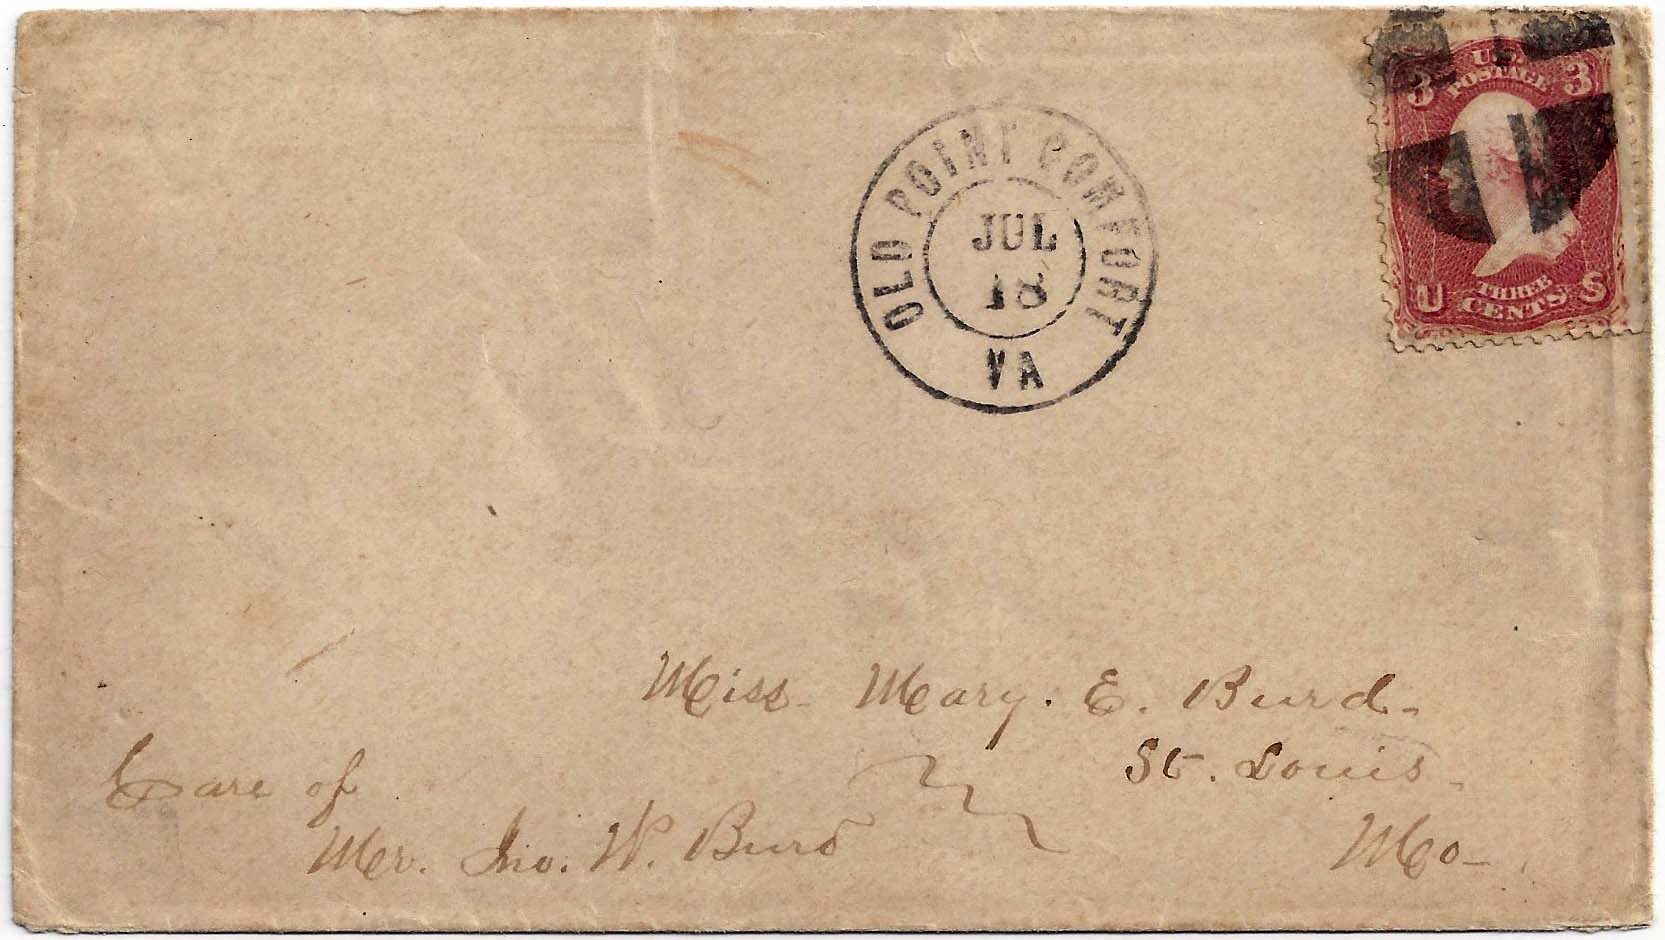 OLD POINT COMFORT
JUL
18
VA
3 U.S. 3
POSTAGE
U THREE S
CENTS
Miss Mary. E. Burd
St. Louis
Mo
Care of
Mr. Jno. W. Burd